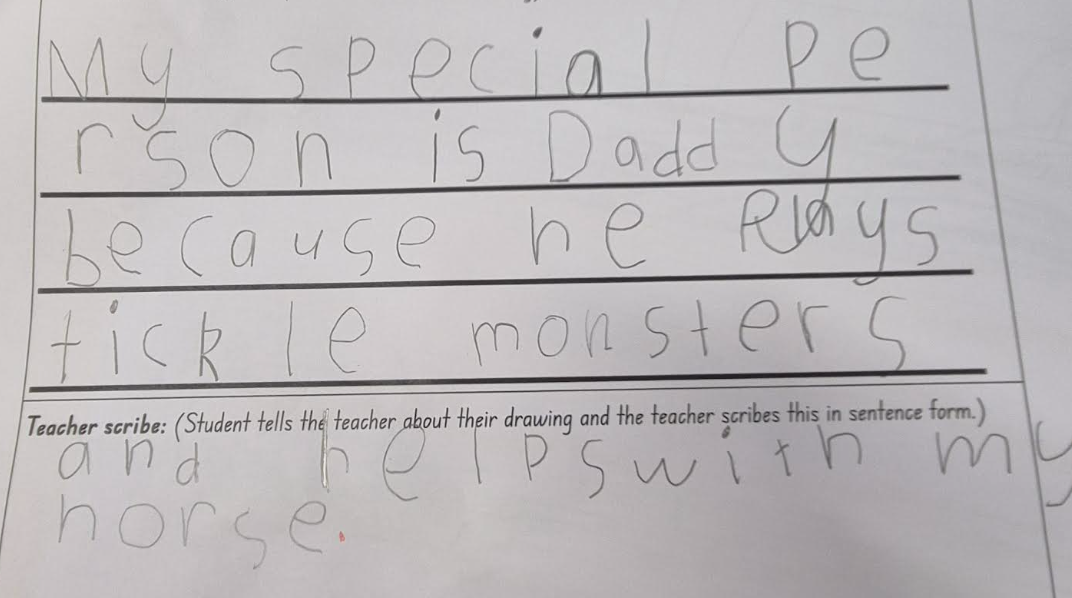 My special pe
rson is Daddy
because he Plays
tickle monsters
Teacher scribe: (Student tells the teacher about their drawing and the teacher scribes this in sentence form.)
and helps with my
horse.